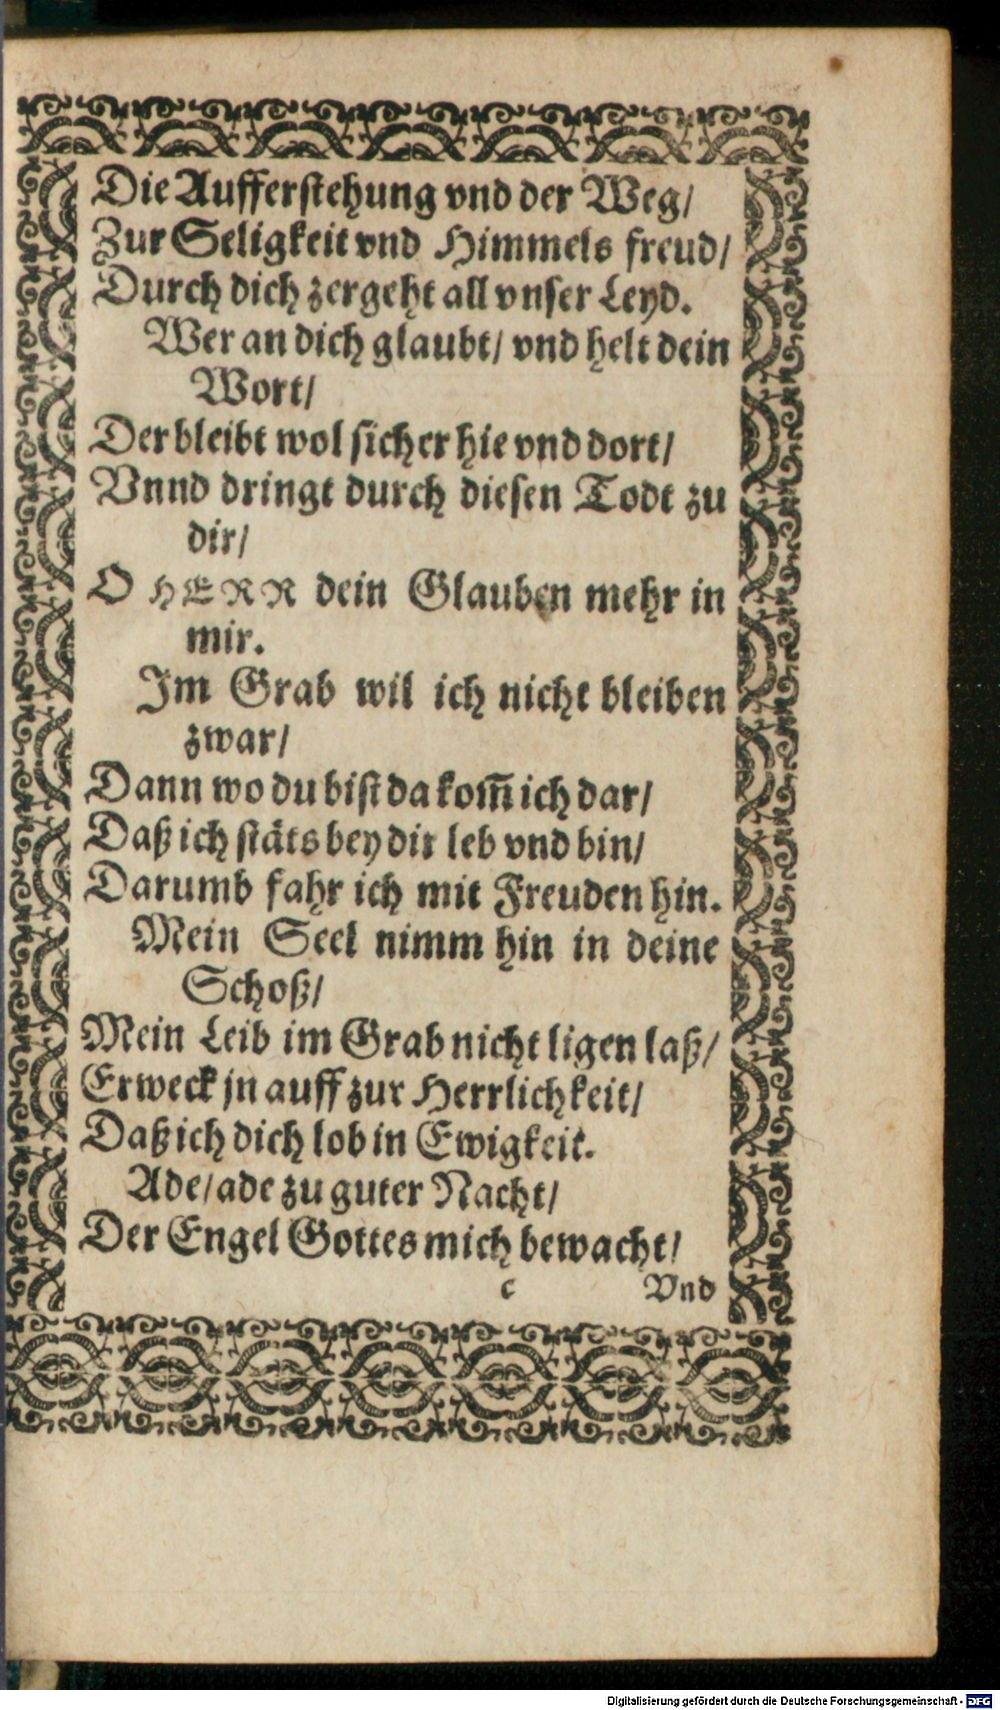 Die Aufferstehung vnd der Weg/
Zur Seligkeit vnd Himmels freud/
Durch dich zergeht all vnser Leyd.
Wer an dich glaubt/ vnd helt dein
Wort/
Der bleibt wol sicher hie vnd dort/
Vnnd dringt durch diesen Todt zu
dir/
O HERR dein Glauben mehr in
mir.
Im Grab wil ich nicht bleiben
zwar/
Dann wo du bist da kom̃ ich dar/
Daß ich stäts bey dir leb vnd bin/
Darumb fahr ich mit Freuden hin.
Mein Seel nimm hin in deine
Schoß/
Mein Leib im Grab nicht ligen laß/
Erweck jn auff zur Herrlichkeit/
Daß ich dich lob in Ewigkeit.
Ade/ ade zu guter Nacht/
Der Engel Gottes mich bewacht/
c Vnd
Digitalisierung gefördert durch die Deutsche Forschungsgemeinschaft - DFG